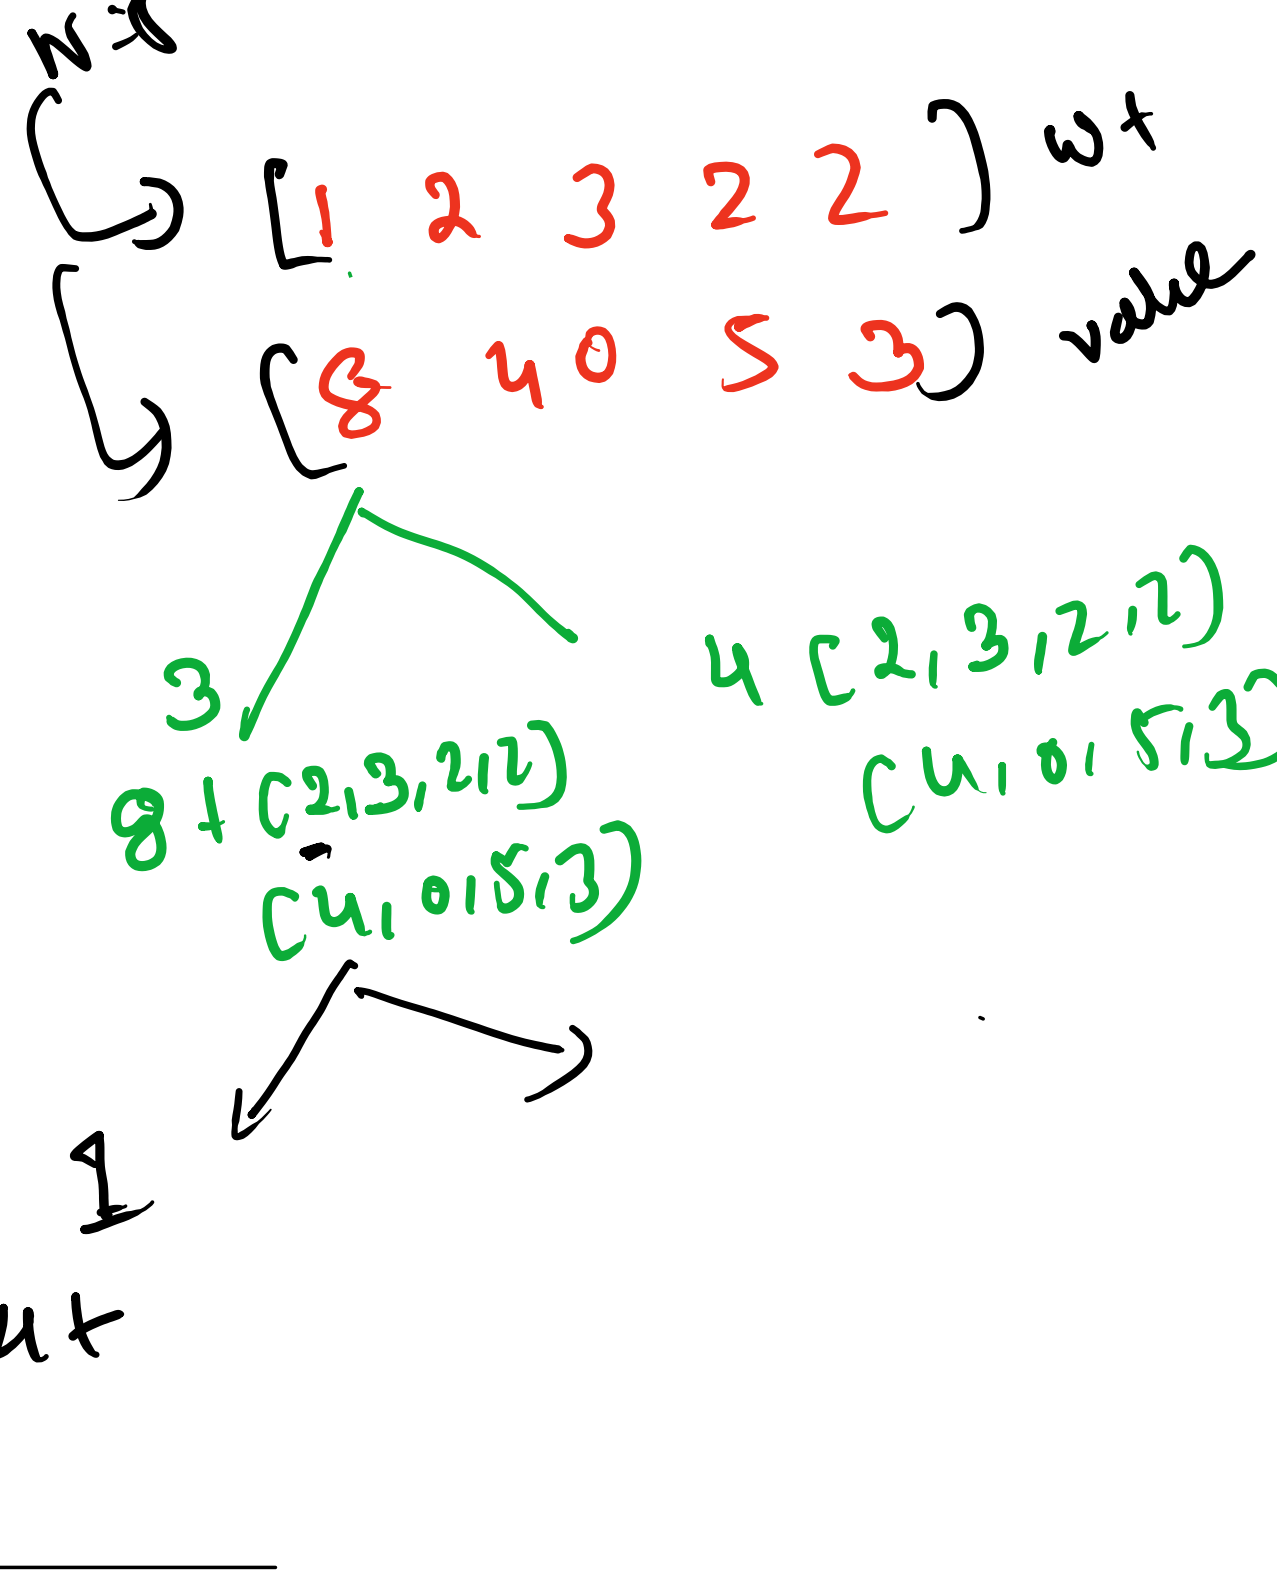 [1 2 3 2 2] wt
[8 4 0 5 3] value
3
8 + [2,3,2,2]
[4,0,5,3]
4 [2,3,2,2]
[4,0,5,3]
1
4+